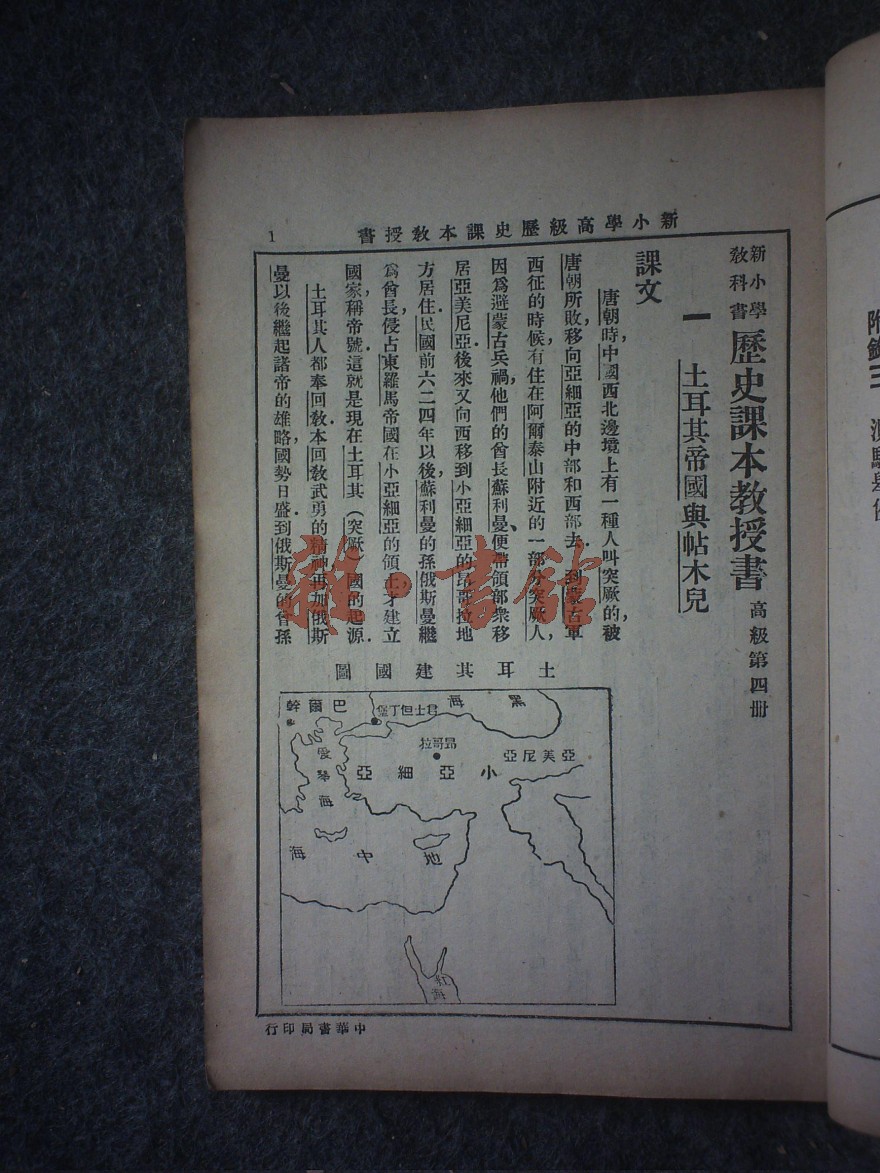 新小學高級歷史課本教授書
1
新小學
教科書
歷史課本教授書
高級第四册
一 土耳其帝國與帖木兒
課文
唐朝時,中國西北邊境上有一種人叫突厥的,被
唐朝所敗,移向亞細亞的中部和西部去.到蒙古軍
西征的時候,有住在阿爾泰山附近的一部分突厥人,
因爲避蒙古兵禍,他們的酋長蘇利曼,便帶領部衆移
居亞美尼亞.後來又向西移到小亞細亞的昂哥拉地
方居住.民國前六二四年以後,蘇利曼的孫俄斯曼繼
爲酋長,侵占東羅馬帝國在小亞細亞的領土,才建立
國家,稱帝號.這就是現在土耳其(突厥)國的起源.
土耳其人都奉回教.本回教武勇的精神,再加俄斯
曼以後繼起諸帝的雄略,國勢日盛.到俄斯曼的曾孫
土耳其建國圖
黑海
君士但丁堡
巴爾幹
昂哥拉
亞美尼亞
小亞細亞
愛琴海
地中海
紅海
中華書局印行
雜·書館
附錄三